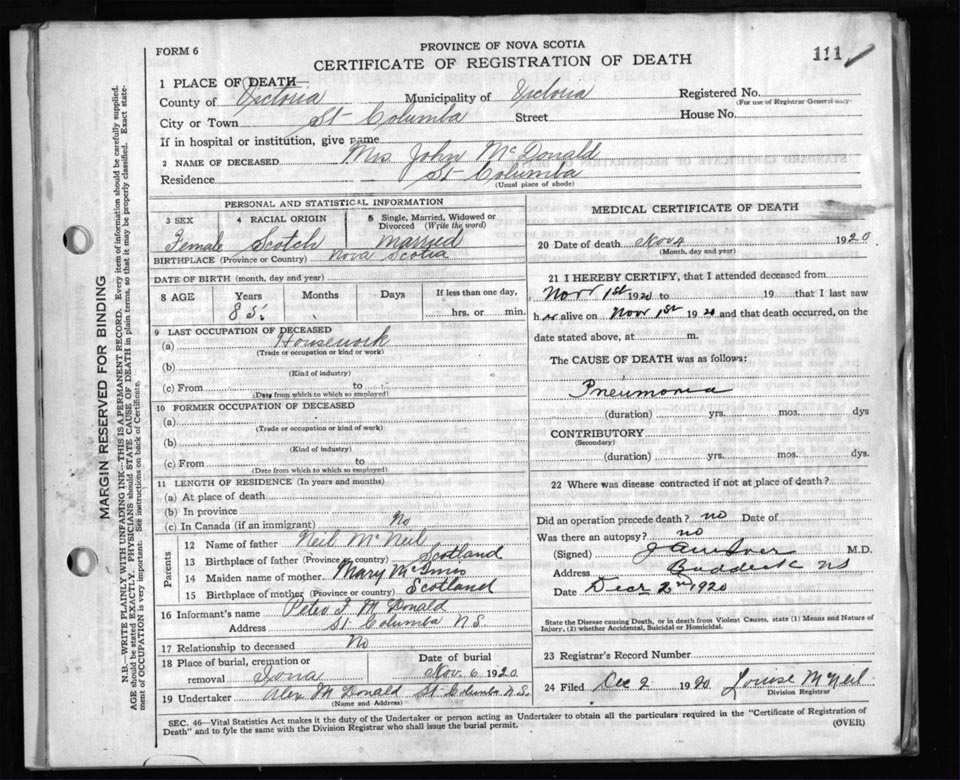 FORM 6
PROVINCE OF NOVA SCOTIA
CERTIFICATE OF REGISTRATION OF DEATH
111
1 PLACE OF DEATH—
County of Victoria Municipality of Victoria Registered No.
(For use of Registrar General only)
City or Town St Columba Street House No.
If in hospital or institution, give name
2 NAME OF DECEASED Mrs John McDonald
Residence St Columba
(Usual place of abode)
PERSONAL AND STATISTICAL INFORMATION
3 SEX 4 RACIAL ORIGIN 5 Single, Married, Widowed or Divorced (Write the word)
Female Scotch Married
BIRTHPLACE (Province or Country) Nova Scotia
DATE OF BIRTH (month, day and year)
8 AGE Years Months Days If less than one day,
85 hrs. or min.
9 LAST OCCUPATION OF DECEASED
(a) Housework
(Trade or occupation or kind or work)
(b)
(Kind of industry)
(c) From to
(Date from which to which so employed)
10 FORMER OCCUPATION OF DECEASED
(a)
(Trade or occupation or kind of work)
(b)
(Kind of industry)
(c) From to
(Date from which to which so employed)
11 LENGTH OF RESIDENCE (In years and months)
(a) At place of death
(b) In province
(c) In Canada (if an immigrant) No
Parents
12 Name of father Neil McNeil
13 Birthplace of father (Province or country) Scotland
14 Maiden name of mother. Mary McInnis
15 Birthplace of mother (Province or country) Scotland
16 Informant's name Peter F McDonald
Address St. Columba N.S.
17 Relationship to deceased No
18 Place of burial, cremation or removal Iona Date of burial Nov. 6 1920
19 Undertaker Alex McDonald St Columba N.S.
(Name and Address)
MEDICAL CERTIFICATE OF DEATH
20 Date of death Nov 4 1920
(Month, day and year)
21 I HEREBY CERTIFY, that I attended deceased from
Nov 1st 1920 to 19 that I last saw
her alive on Nov 1st 1920 and that death occurred, on the
date stated above, at m.
The CAUSE OF DEATH was as follows:
Pneumonia
(duration) yrs. mos. dys
CONTRIBUTORY
(Secondary)
(duration) yrs. mos. dys.
22 Where was disease contracted if not at place of death?
Did an operation precede death? no Date of
Was there an autopsy? no
(Signed) M.D.
Address Baddeck NS
Date Decr 2nd 1920
State the Disease causing Death, or in death from Violent Causes, state (1) Means and Nature of
Injury, (2) whether Accidental, Suicidal or Homicidal.
23 Registrar's Record Number
24 Filed Dec 2 1920 Louise McNeil
Division Registrar
SEC. 46—Vital Statistics Act makes it the duty of the Undertaker or person acting as Undertaker to obtain all the particulars required in the "Certificate of Registration of
Death" and to fyle the same with the Division Registrar who shall issue the burial permit. (OVER)
MARGIN RESERVED FOR BINDING
N.B.—WRITE PLAINLY WITH UNFADING INK—THIS IS A PERMANENT RECORD. Every item of information should be carefully supplied.
AGE should be stated EXACTLY. PHYSICIANS should STATE CAUSE OF DEATH in plain terms, so that it may be properly classified. Exact statement of OCCUPATION is very important. See instructions on back of Certificate.